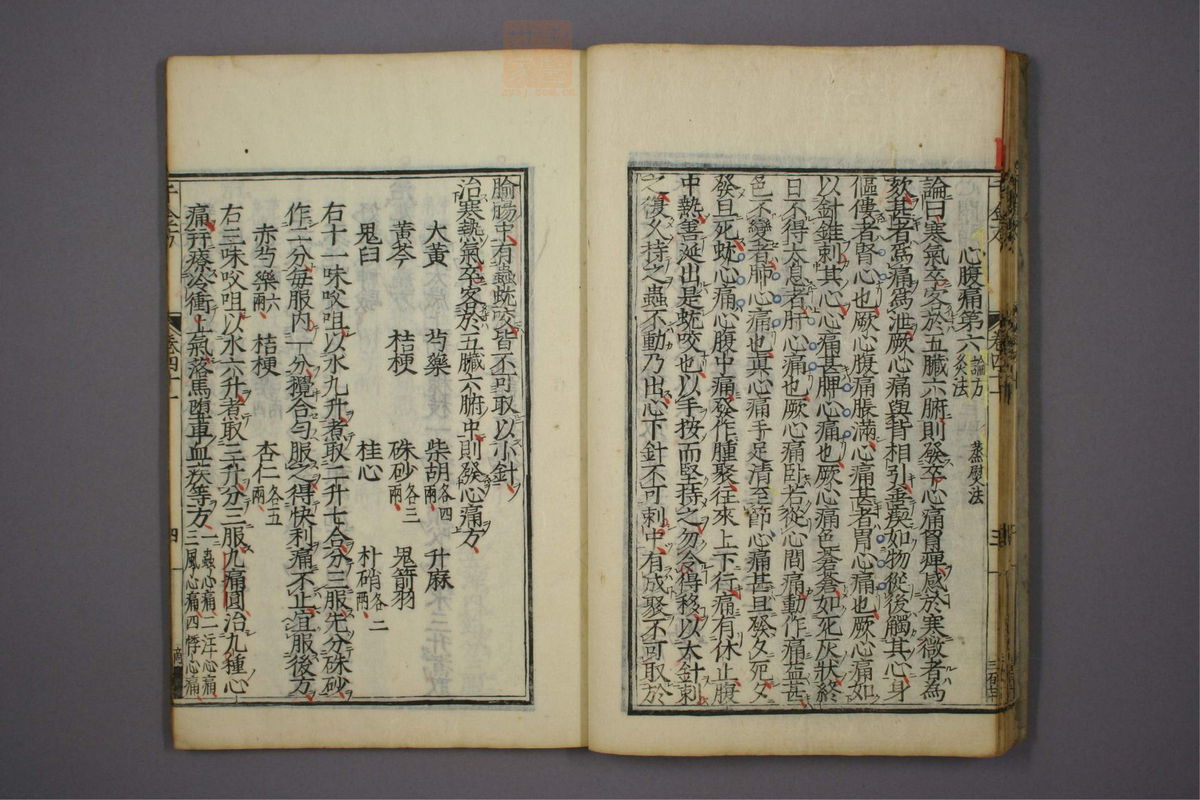 心腹痛第六 論方 灸法 蒸熨法
論曰寒氣卒客於五臟六腑則發卒心痛胷痺感於寒微者為
欬甚者為痛為泄厥心痛與背相引善瘈如物從後觸其心身
傴僂者腎心也厥心腹痛脹滿心痛甚者胃心痛也厥心痛如
以針錐刺其心心痛甚脾心痛也厥心痛色蒼蒼如死灰狀終
日不得太息者肝心痛也厥心痛臥若從心間痛動作痛益甚
色不變者肺心痛也真心痛手足清至節心痛甚旦發夕死夕
發旦死蚘心痛心腹中痛發作腫聚往來上下行痛有休止腹
中熱善涎出是蚘咬也以手按而堅持之勿令得移以大針刺
之復久持之蟲不動乃出心下針不可刺中有成聚不可取於
腧腸中有蟲蚘咬皆不可取以小針
治寒熱氣卒客於五臟六腑中則發心痛方
大黃 芍藥 柴胡各四兩 升麻
黃芩 桔梗 硃砂各三兩 鬼箭羽
鬼臼 桂心 朴硝各二兩
右十一味㕮咀以水九升煮取二升七合分三服先分硃砂
作二分每服內一分攪合勻服之得快利痛不止宜服後方
赤芍藥六兩 桔梗 杏仁各五兩
右三味㕮咀以水六升煮取三升分三服九痛圓治九種心
痛并療冷衝上氣落馬墮車血疾等方一蟲心痛二注心痛三風心痛四悸心痛
千金方
卷四十一
四